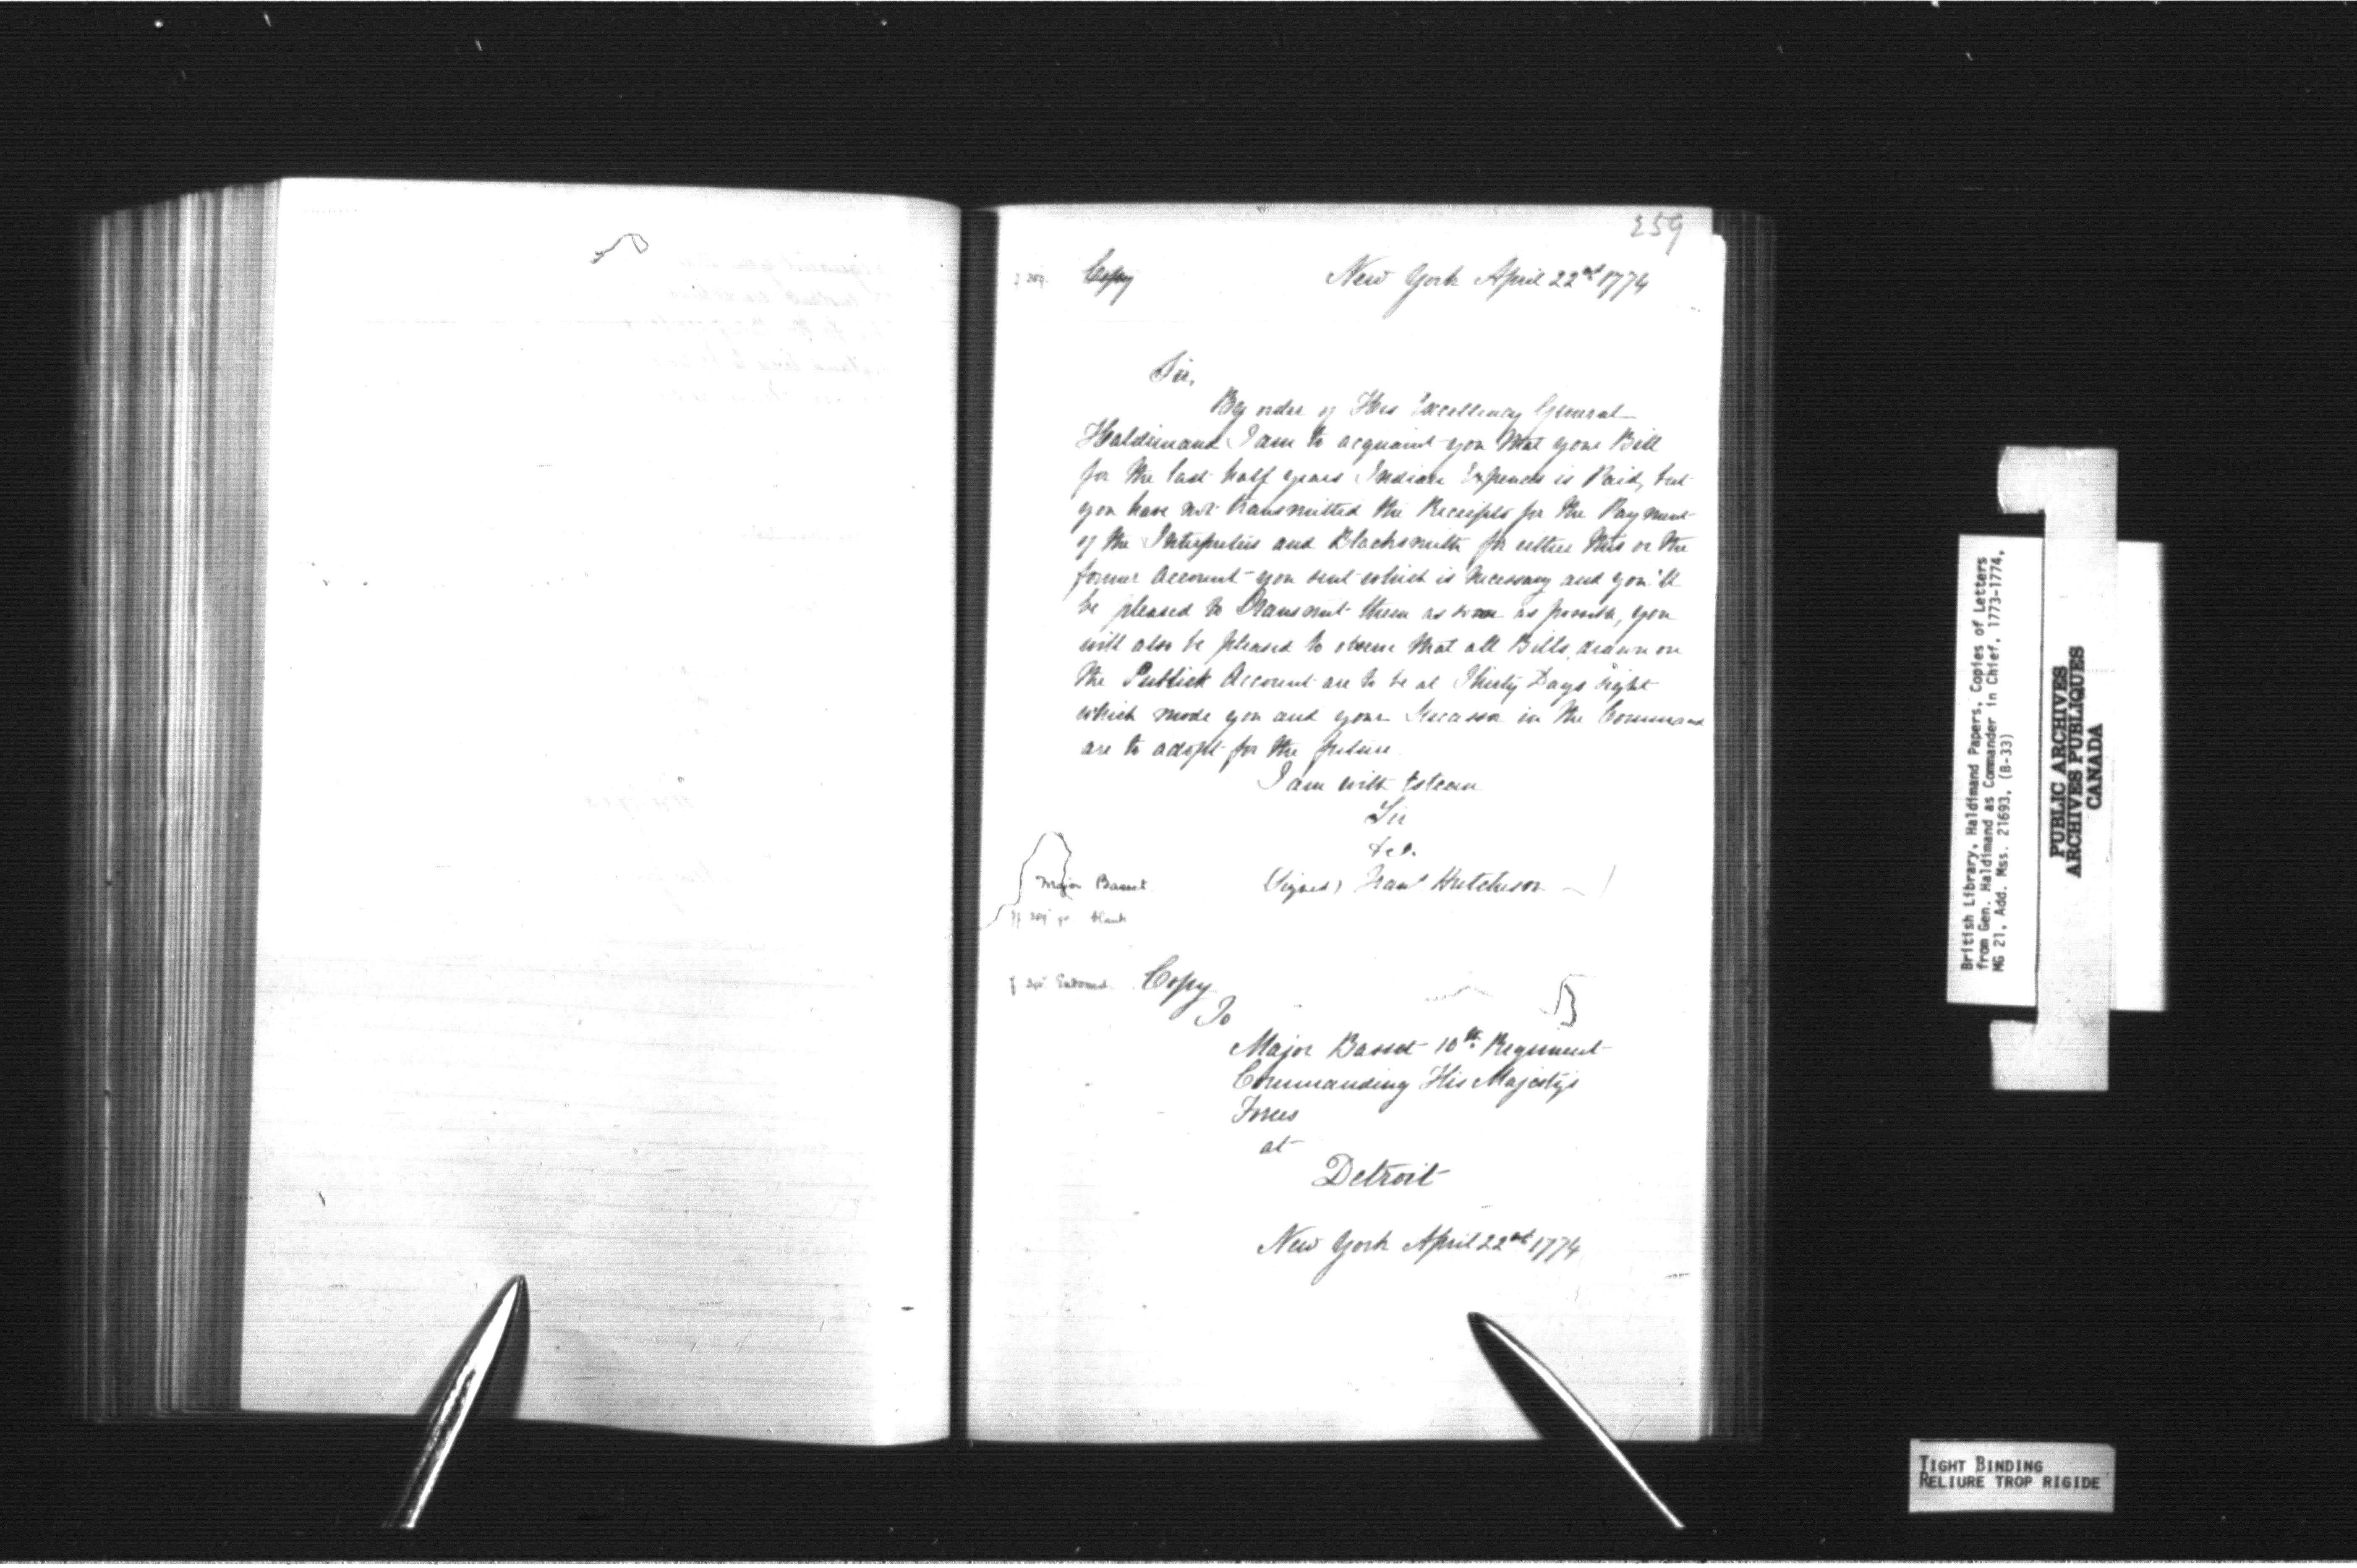 259
Copy New York April 22nd 1774
Sir,
By order of His Excellency General
Haldimand I am to acquaint you that your Bill
for the last half years Indian Expences is Paid, but
you have not transmitted the Receipts for the Payment
of the Interpreters and Blacksmith for either this or the
former Account you sent which is necessary and you'll
be pleased to transmit them as soon as possible, you
will also be pleased to observe that all Bills drawn on
the Publick Account are to be at Thirty Days sight
which mode you and your Successor in the Command
are to adopt for the future.
I am with Esteem
Sir
&c.
Major Basset (Signed) Frans Hutcheson
blank
Endorsed. Copy
To
Major Basset 10th Regiment
Commanding His Majesty's
Forces
at
Detroit
New York April 22nd 1774
British Library, Haldimand Papers, Copies of Letters
from Gen. Haldimand as Commander in Chief, 1773-1774,
MG 21, Add. Mss. 21693, (B-33)
PUBLIC ARCHIVES
ARCHIVES PUBLIQUES
CANADA
TIGHT BINDING
RELIURE TROP RIGIDE